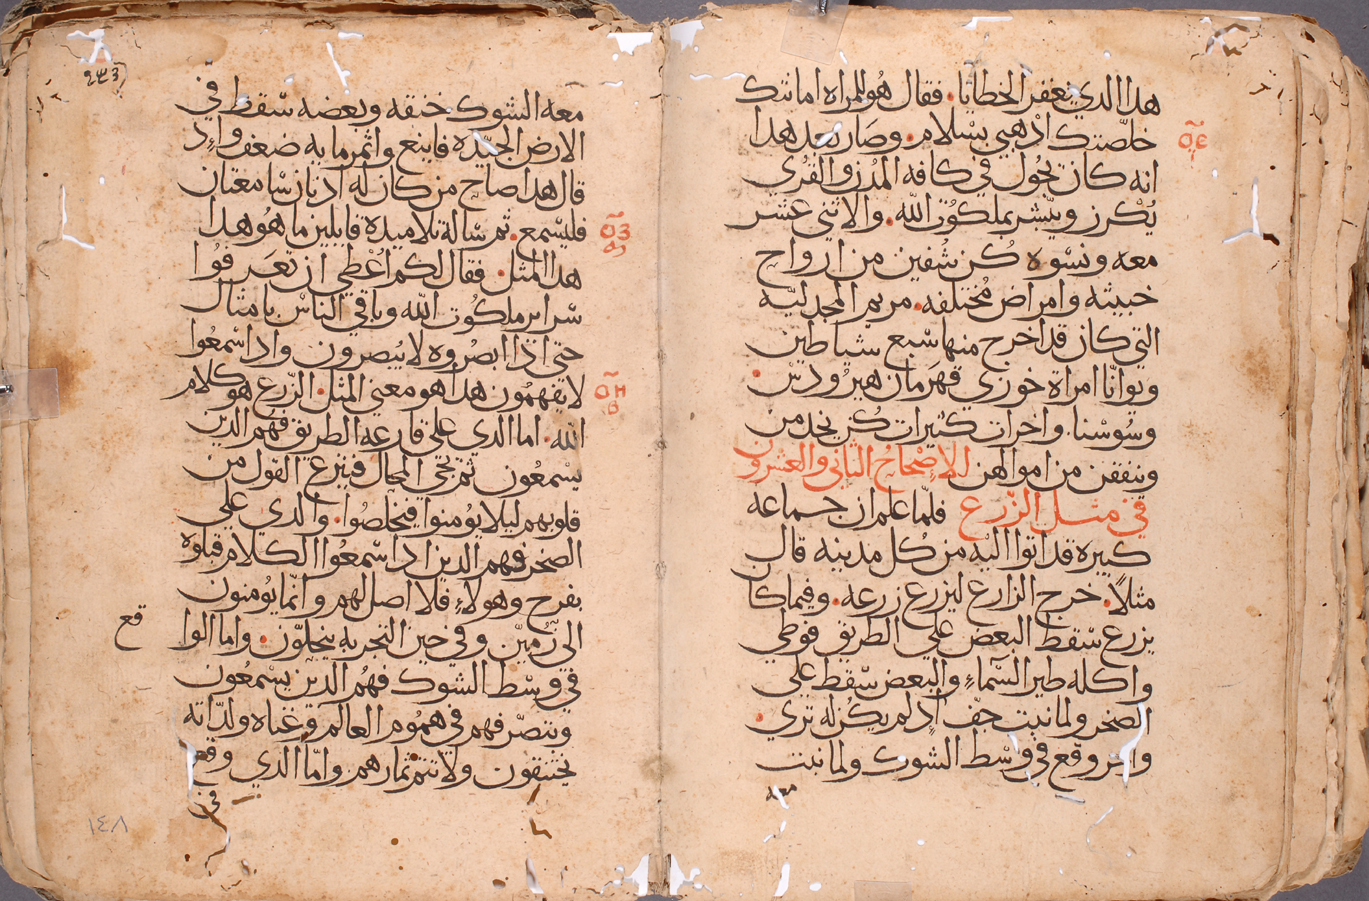 هدا الدي يغفر الخطايا. فقال هُو للمراه امانتك
خلّصتك ادهبي بسْلام. وصَار بَعد هدا
انه كان يجُول في كافه المُدن والقُري
يُكرز ويبّشر بملكوُت اللّه. والاثني عشر
معه ونسْوه كُن شُفين من ارواح
خبيثه وامراض مُختلفه. مريم المجدليّه
التي كان قد اخرج منها سْبع شياطين
ويوانّا امراة خوزي قهرَمان هيرُودسْ.
وسُوسْنا. واخرات كثيرات كُن يخدمن
وينفقن من اموالهن الاصْحاحُ الثاني والعشرون
في مثل الزّرع فلمّا علم ان جماعه
كبيرة قد اتوا اليه من كُل مدينه قال
مثلاً. خرج الزارع ليزرع زرعه. وفيما كان
يزرع سْقط البعض علي الطريق فوطي
واكله طير السّماءِ والبعض سْقط علي
الصخر ولما نبت جفّ اد لم يكُن له تري.
واخر وقع في وسْط الشوك ولما نبت
معه
٢٤٣
معه الشوك خنقه وبعضه سْقط في
الارض الجيّده فاينع واثمر مايه ضعف واد
قال هدا صَاح من كان له ادنان سْامعتان
فليسْمع. ثم سْالة تلاميده قايلين ما هُو هدا
هدا المثل. فقال لكم اُعْطي ان تعَرفوُا
سْراير ملكوُت اللّه وباقي الناسْ بامثال
حتي ادا ابصرُوه لا يُبصرون وادا سْمعُوا
لا يفهمُون هدا هو معني المثل. الزّرع هو كلام
اللّه. اما الدي علي قارعه الطريق فهم الدين
يسْمعُون ثم تجي المحال فينزع القول من
قلوبهم ليلا يوُمنوا فيخلصُوا. والدي علي
الصخر فهم الدين ادا سْمعُوا الكلام قبلوه
بفرح وهولاءِ فلا اصل لهم وانّما يوُمنون
الي زمين وفي حين التجربه يتخلّون. واما الوا
قع
في وسْط الشوك فهُم الدين يسْمعُون
وتتصرّفهم في همُوم العالم وغناه ولدّاته
يختنقون ولا تتم ثمارهم وامّا الدي وقع
في
١٤٨